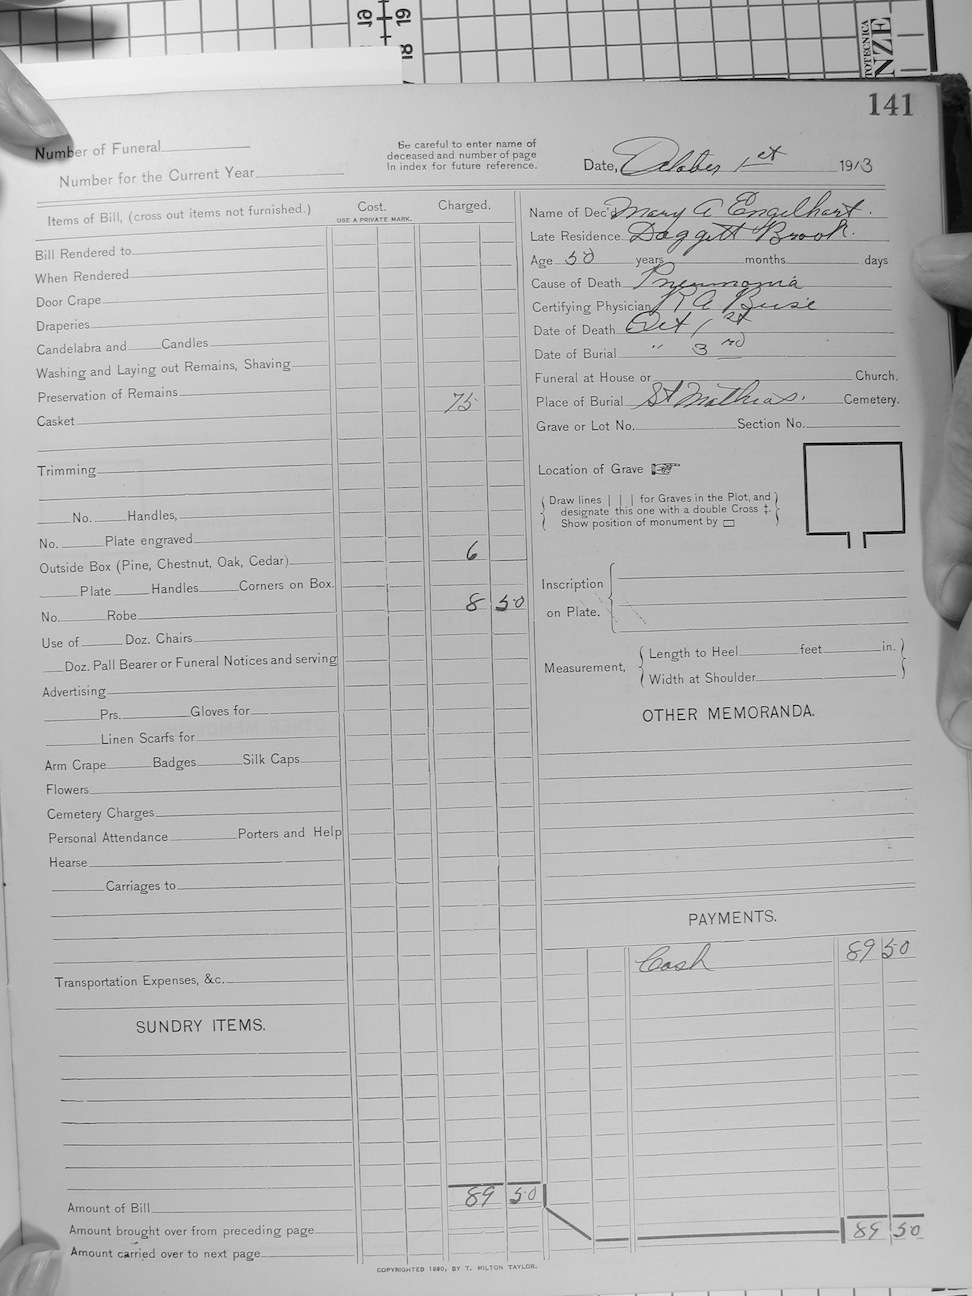 141
Number of Funeral
Number for the Current Year
Be careful to enter name of
deceased and number of page
In index for future reference.
Date, October 1st 1913
Items of Bill, (cross out items not furnished.)
Cost.
USE A PRIVATE MARK.
Charged.
Bill Rendered to
When Rendered
Door Crape
Draperies
Candelabra and Candles
Washing and Laying out Remains, Shaving
Preservation of Remains
Casket 75
Trimming
No. Handles,
No. Plate engraved
Outside Box (Pine, Chestnut, Oak, Cedar) 6
Plate Handles Corners on Box.
No. Robe 8 50
Use of Doz. Chairs
Doz. Pall Bearer or Funeral Notices and serving
Advertising
Prs. Gloves for
Linen Scarfs for
Arm Crape Badges Silk Caps
Flowers
Cemetery Charges
Personal Attendance Porters and Help
Hearse
Carriages to
Transportation Expenses, &c.
SUNDRY ITEMS.
Amount of Bill 89 50
Amount brought over from preceding page
Amount carried over to next page
Name of Dec'd Mary A Engelhart.
Late Residence Daggett Brook.
Age 50 years months days
Cause of Death Pneumonia
Certifying Physician R A Beise
Date of Death Oct 1st
Date of Burial " 3rd
Funeral at House or Church.
Place of Burial St Mathias. Cemetery.
Grave or Lot No. Section No.
Location of Grave
Draw lines | | | for Graves in the Plot, and
designate this one with a double Cross ‡.
Show position of monument by ▭
Inscription
on Plate.
Measurement,
Length to Heel feet in.
Width at Shoulder
OTHER MEMORANDA.
PAYMENTS.
Cash 89 50
89 50
COPYRIGHTED 1890, BY T. MILTON TAYLOR.